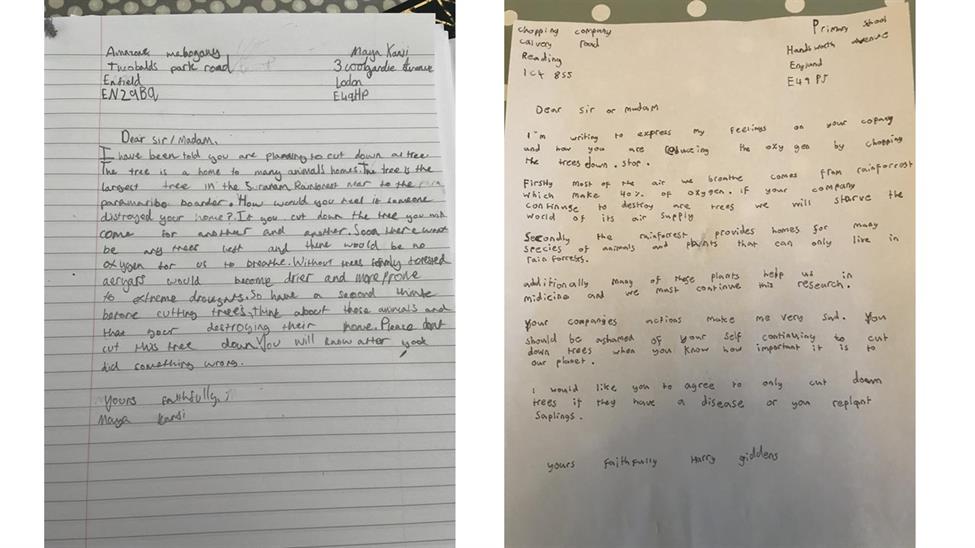 Amazone mahogany
Theobalds park road
Enfield
EN29BQ
Maya Kanji
3 coolgardie Avenue
Lodon
E49HP
Dear Sir/Madam,
I have been told you are planning to cut down a tree
The tree is a home to many animals homes. The tree is the
largest tree in the Surinam Rainforest near to the
paramaribo boarder. How would you feel if someone
distroyed your home?. If you cut down the tree you will
come for another and another. Soon there wont
be any trees left and there would be no
oxygen for us to breathe. Without trees formly forested
would become drier and more prone
to extreme droughts. So have a second think
before cutting trees, think about those animals and
that your destroying their home. Please dont
cut this tree down. You will know after you
did something wrong.
Yours Faithfully,
Maya Kanji
chopping company
calvery road
Reading
1C4 8SS
Primary School
Handsworth avenue
England
E49 PJ
Dear Sir or madam
I'm writing to express my feelings on your copany
and how you are reducing the oxygen by chopping
the trees down. stop.
Firstly most of the air we breathe comes from rainforrest
which make 40% of oxygen. if your company
continue to destroy are trees we will starve the
world of its air supply
Secondly the rainforrest provides homes for many
species of animals and plants that can only live in
rainforrests.
additionally many of these plants help us in
midicine and we must continue this research.
Your companies actions make me very sad. You
should be ashamed of your self continuing to cut
down trees when you know how important it is to
our planet.
i would like you to agree to only cut down
trees if they have a disease or you replant
saplings.
yours faithfully Harry giddens